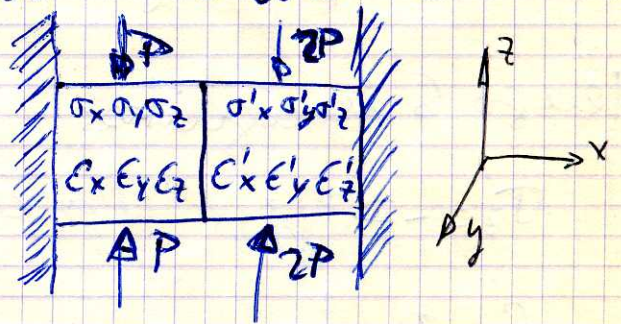 P 2P
σx σy σz σ'x σ'y σ'z z
εx εy εz ε'x ε'y ε'z x
P 2P y